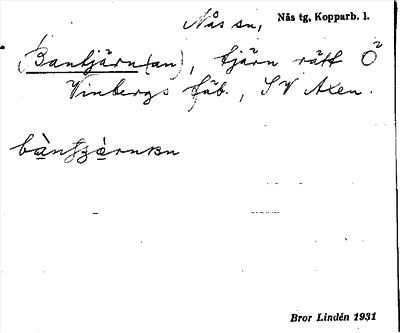 Nås sn, Nås tg, Kopparb. l.
Bantjärn(an), tjärn rätt Ö
Vinbergs fäb., SV Axen.
Bror Lindén 1931